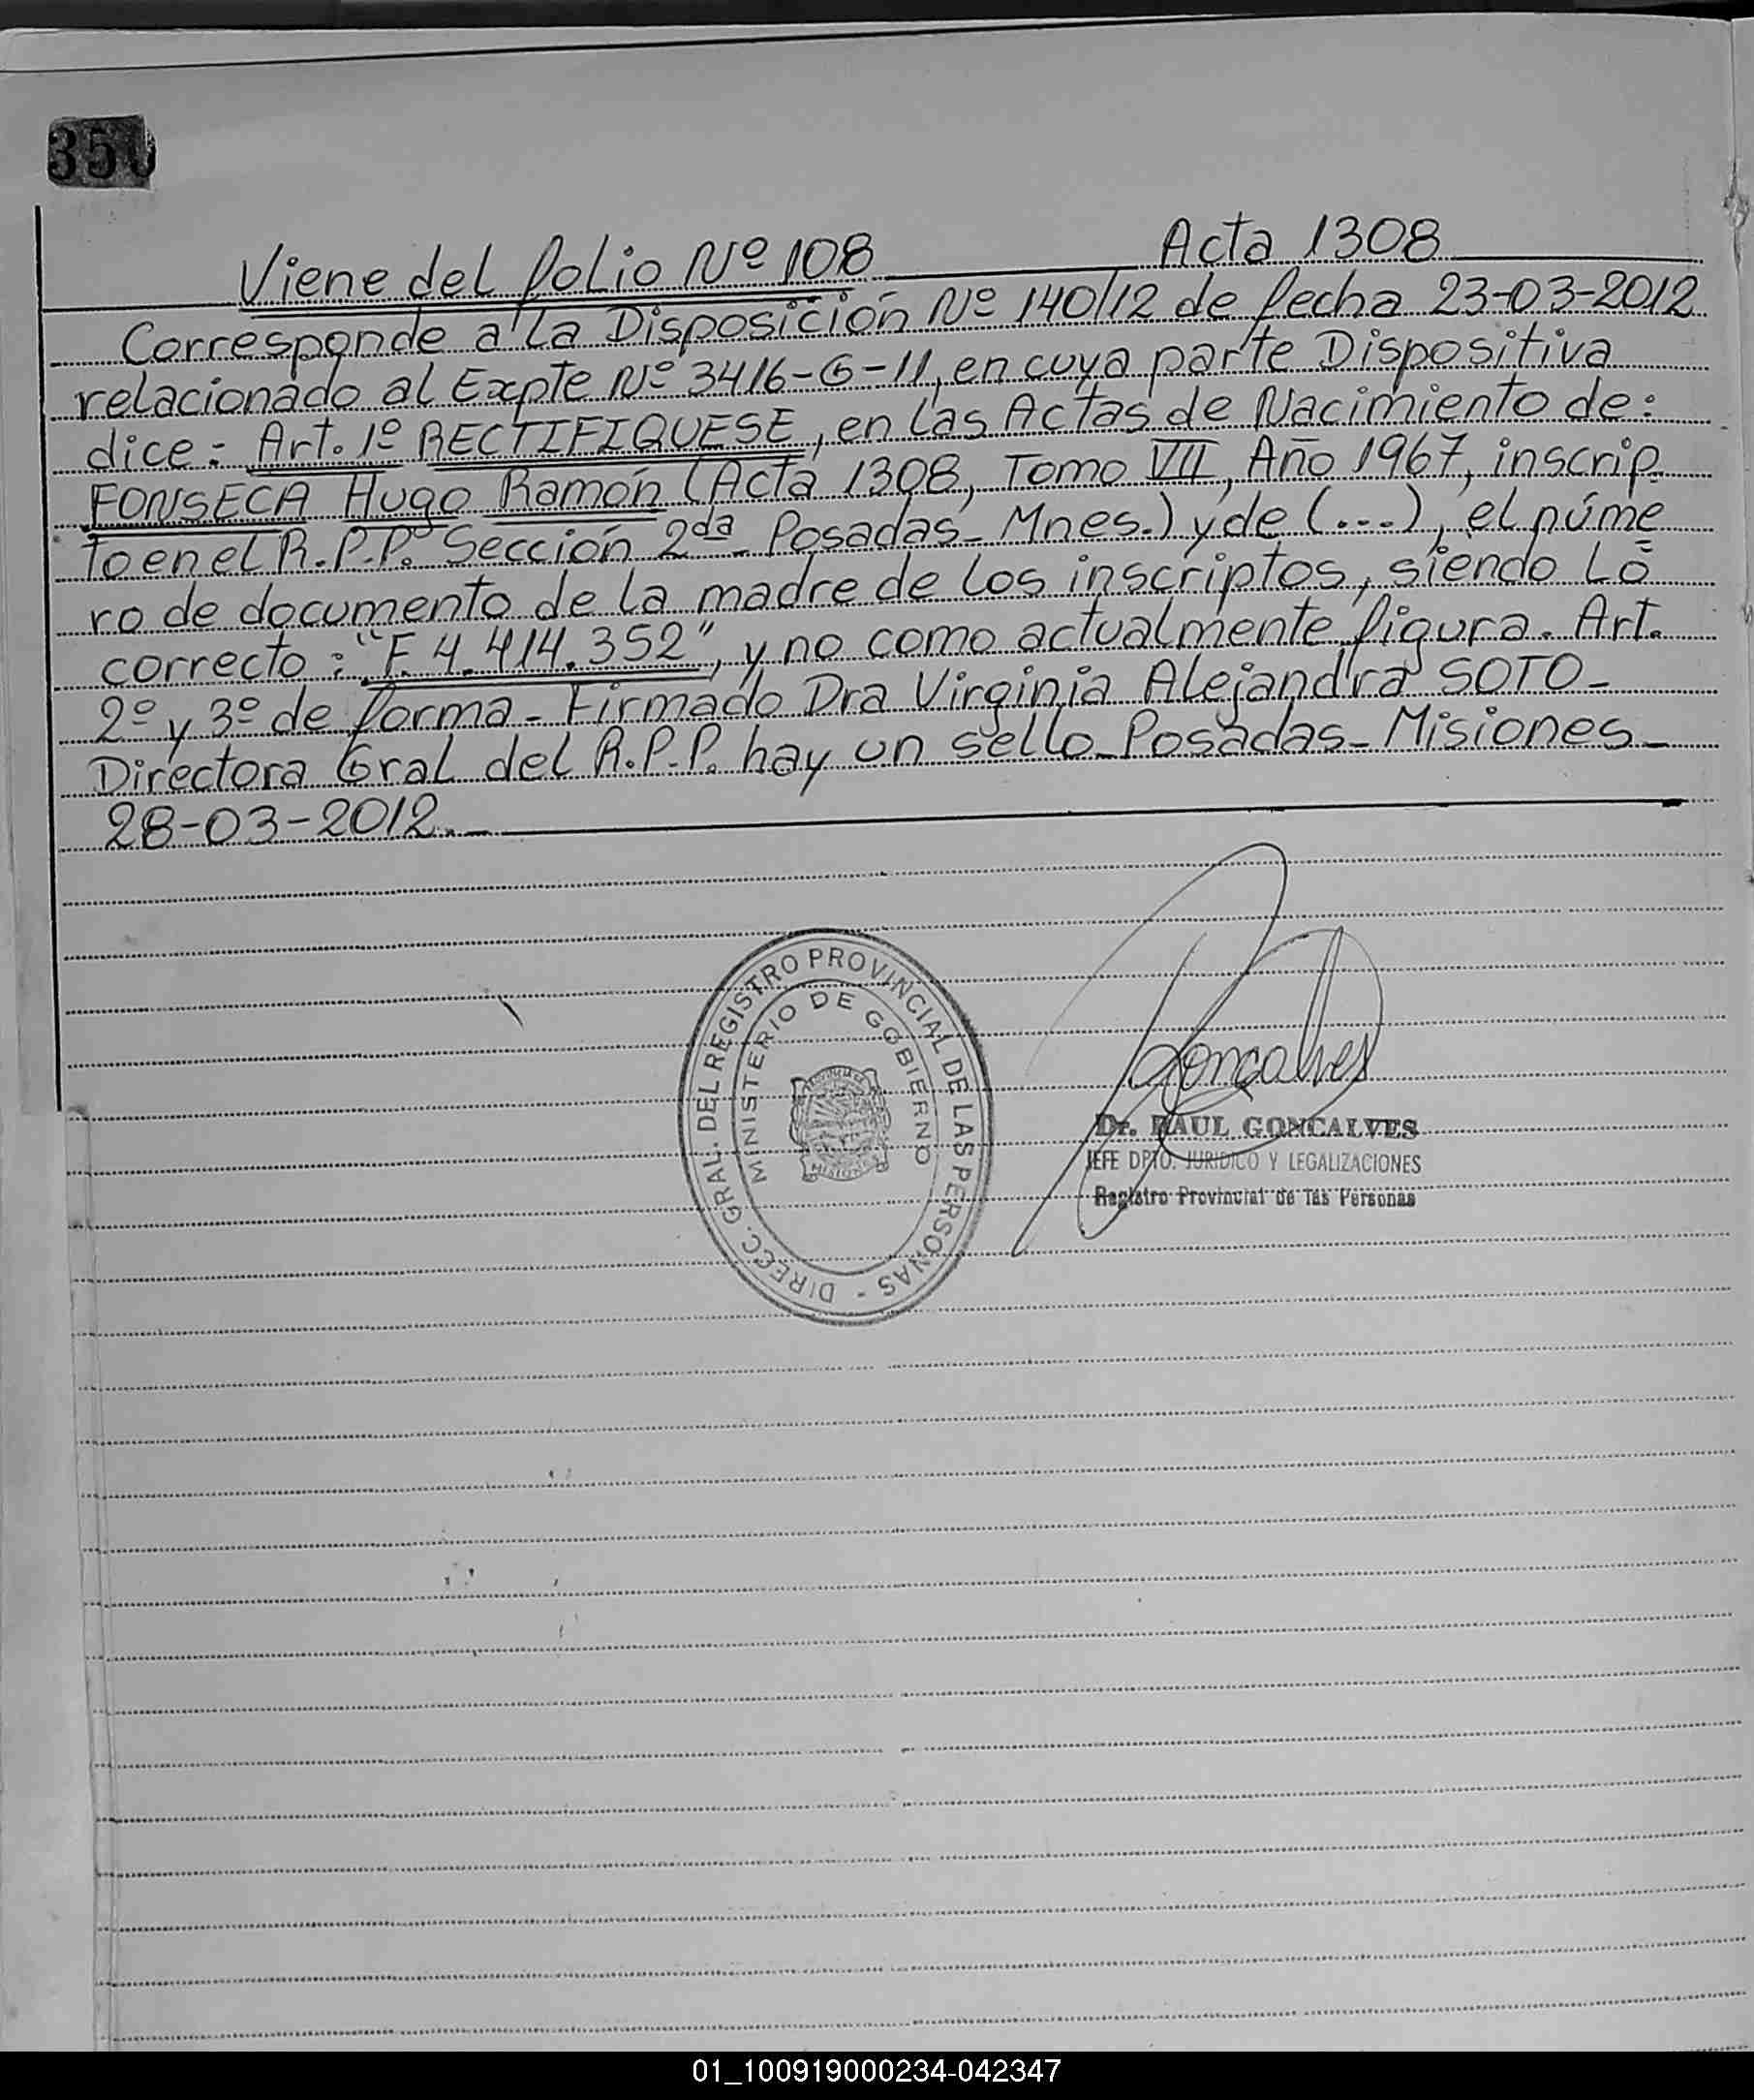 350
Viene del folio Nº 108 Acta 1308
Corresponde a la Disposición Nº 140/12 de fecha 23-03-2012
relacionado al Expte Nº 3416-G-11, en cuya parte Dispositiva
dice: Art. 1º RECTIFIQUESE, en las Actas de Nacimiento de:
FONSECA Hugo Ramón (Acta 1308, Tomo VII, Año 1967, inscrip
to en el R.P.P. Sección 2da - Posadas - Mnes.) y de (...), el núme
ro de documento de la madre de los inscriptos, siendo lo
correcto: "F. 4.414.352", y no como actualmente figura. Art.
2º y 3º de forma - Firmado Dra Virginia Alejandra SOTO -
Directora Gral del R.P.P. hay un sello - Posadas - Misiones -
28-03-2012. -
DIREC. GRAL. DEL REGISTRO PROVINCIAL DE LAS PERSONAS -
MINISTERIO DE GOBIERNO
PROVINCIA DE
MISIONES
Goncalves
Dr. RAUL GONCALVES
JEFE DPTO. JURIDICO Y LEGALIZACIONES
Registro Provincial de las Personas
01_100919000234-042347